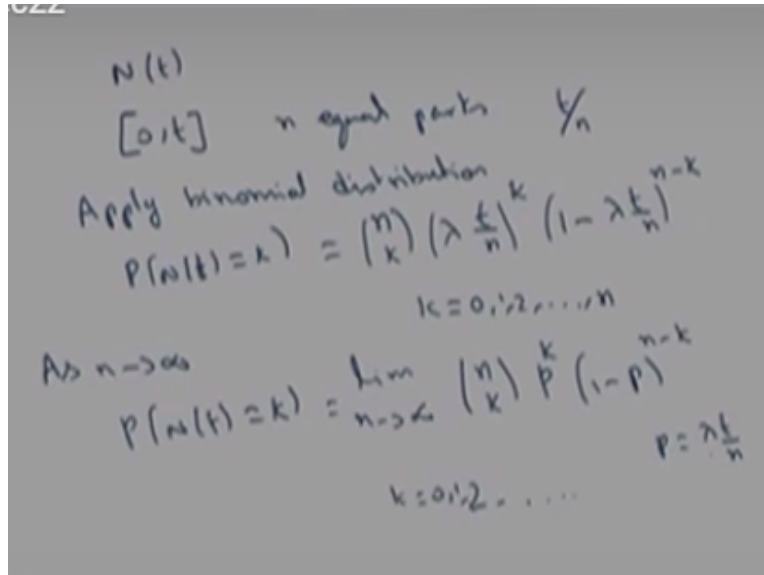 N(t)
[0,t] n equal parts t/n
Apply binomial distribution
P(N(t)=k) = (n k) (λ t/n)^k (1-λ t/n)^{n-k}
k=0,1,2,....,n
As n->∞
P(N(t)=k) = lim n->∞ (n k) p^k (1-p)^{n-k}
p = λt/n
k=0,1,2. ....